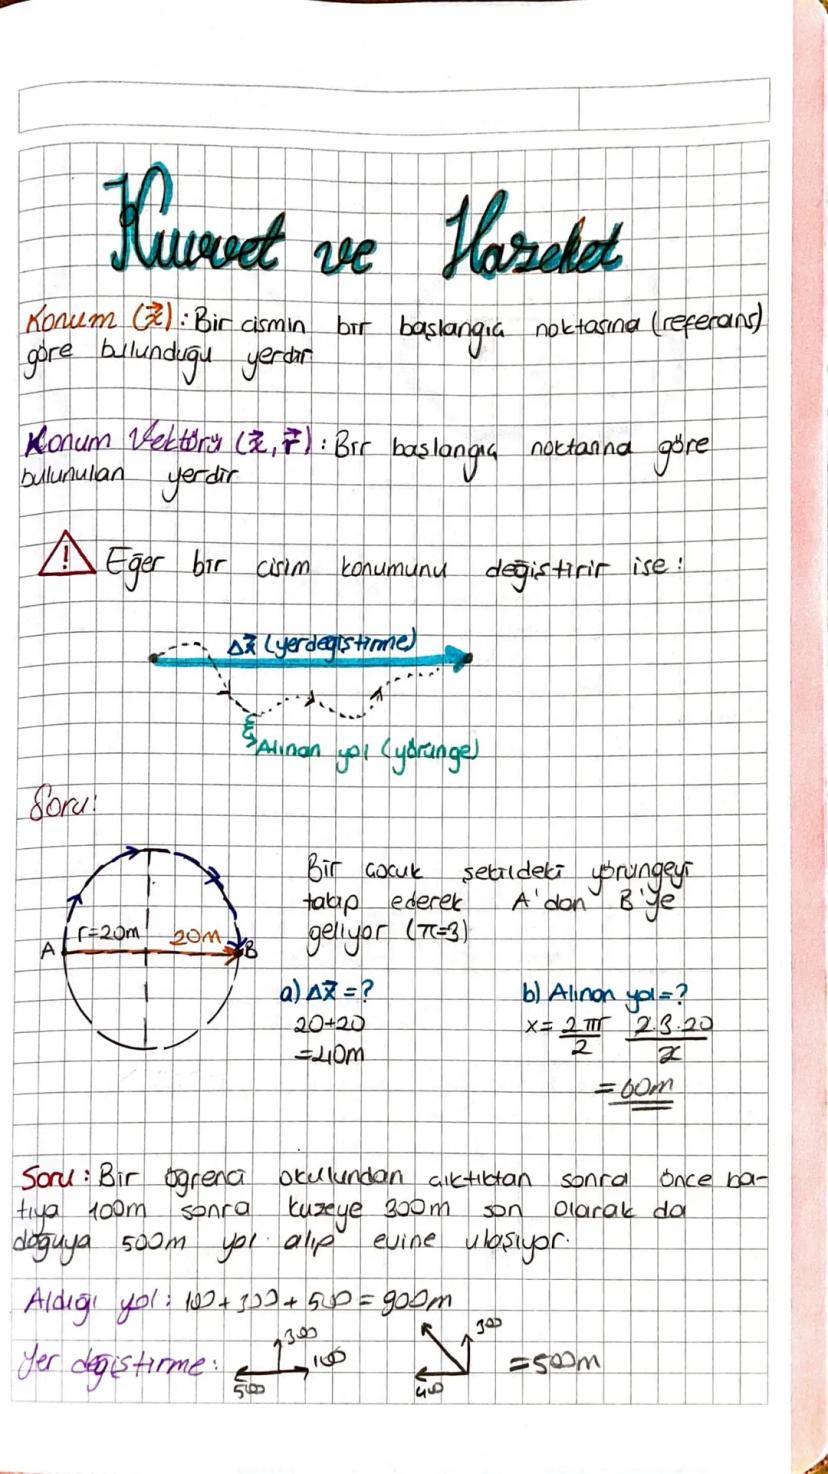 Kuvvet ve Hareket
Konum (x⃗): Bir cismin bir başlangıç noktasına (referans)
göre bulunduğu yerdir
Konum Vektörü (x⃗, r⃗): Bir başlangıç noktasına göre
bulunulan yerdir
! Eğer bir cisim konumunu değiştirir ise:
Δx⃗ (yerdegiştirme)
Alınan yol (yörünge)
Soru:
Bir çocuk şekildeki yörüngeyi
takip ederek A'dan B'ye
geliyor (π=3)
A r=20m 20m B
a) Δx⃗ = ?
20+20
=40m
b) Alınan yol = ?
x = 2πr/2 2.3.20/2
= 60m
Soru: Bir öğrenci okulundan çıktıktan sonra önce ba-
tıya 100m sonra kuzeye 300m son olarak da
doğuya 500m yol alıp evine ulaşıyor.
Aldığı yol: 100+300+500=900m
Yer değiştirme: 500 300 100 400 300 =500m